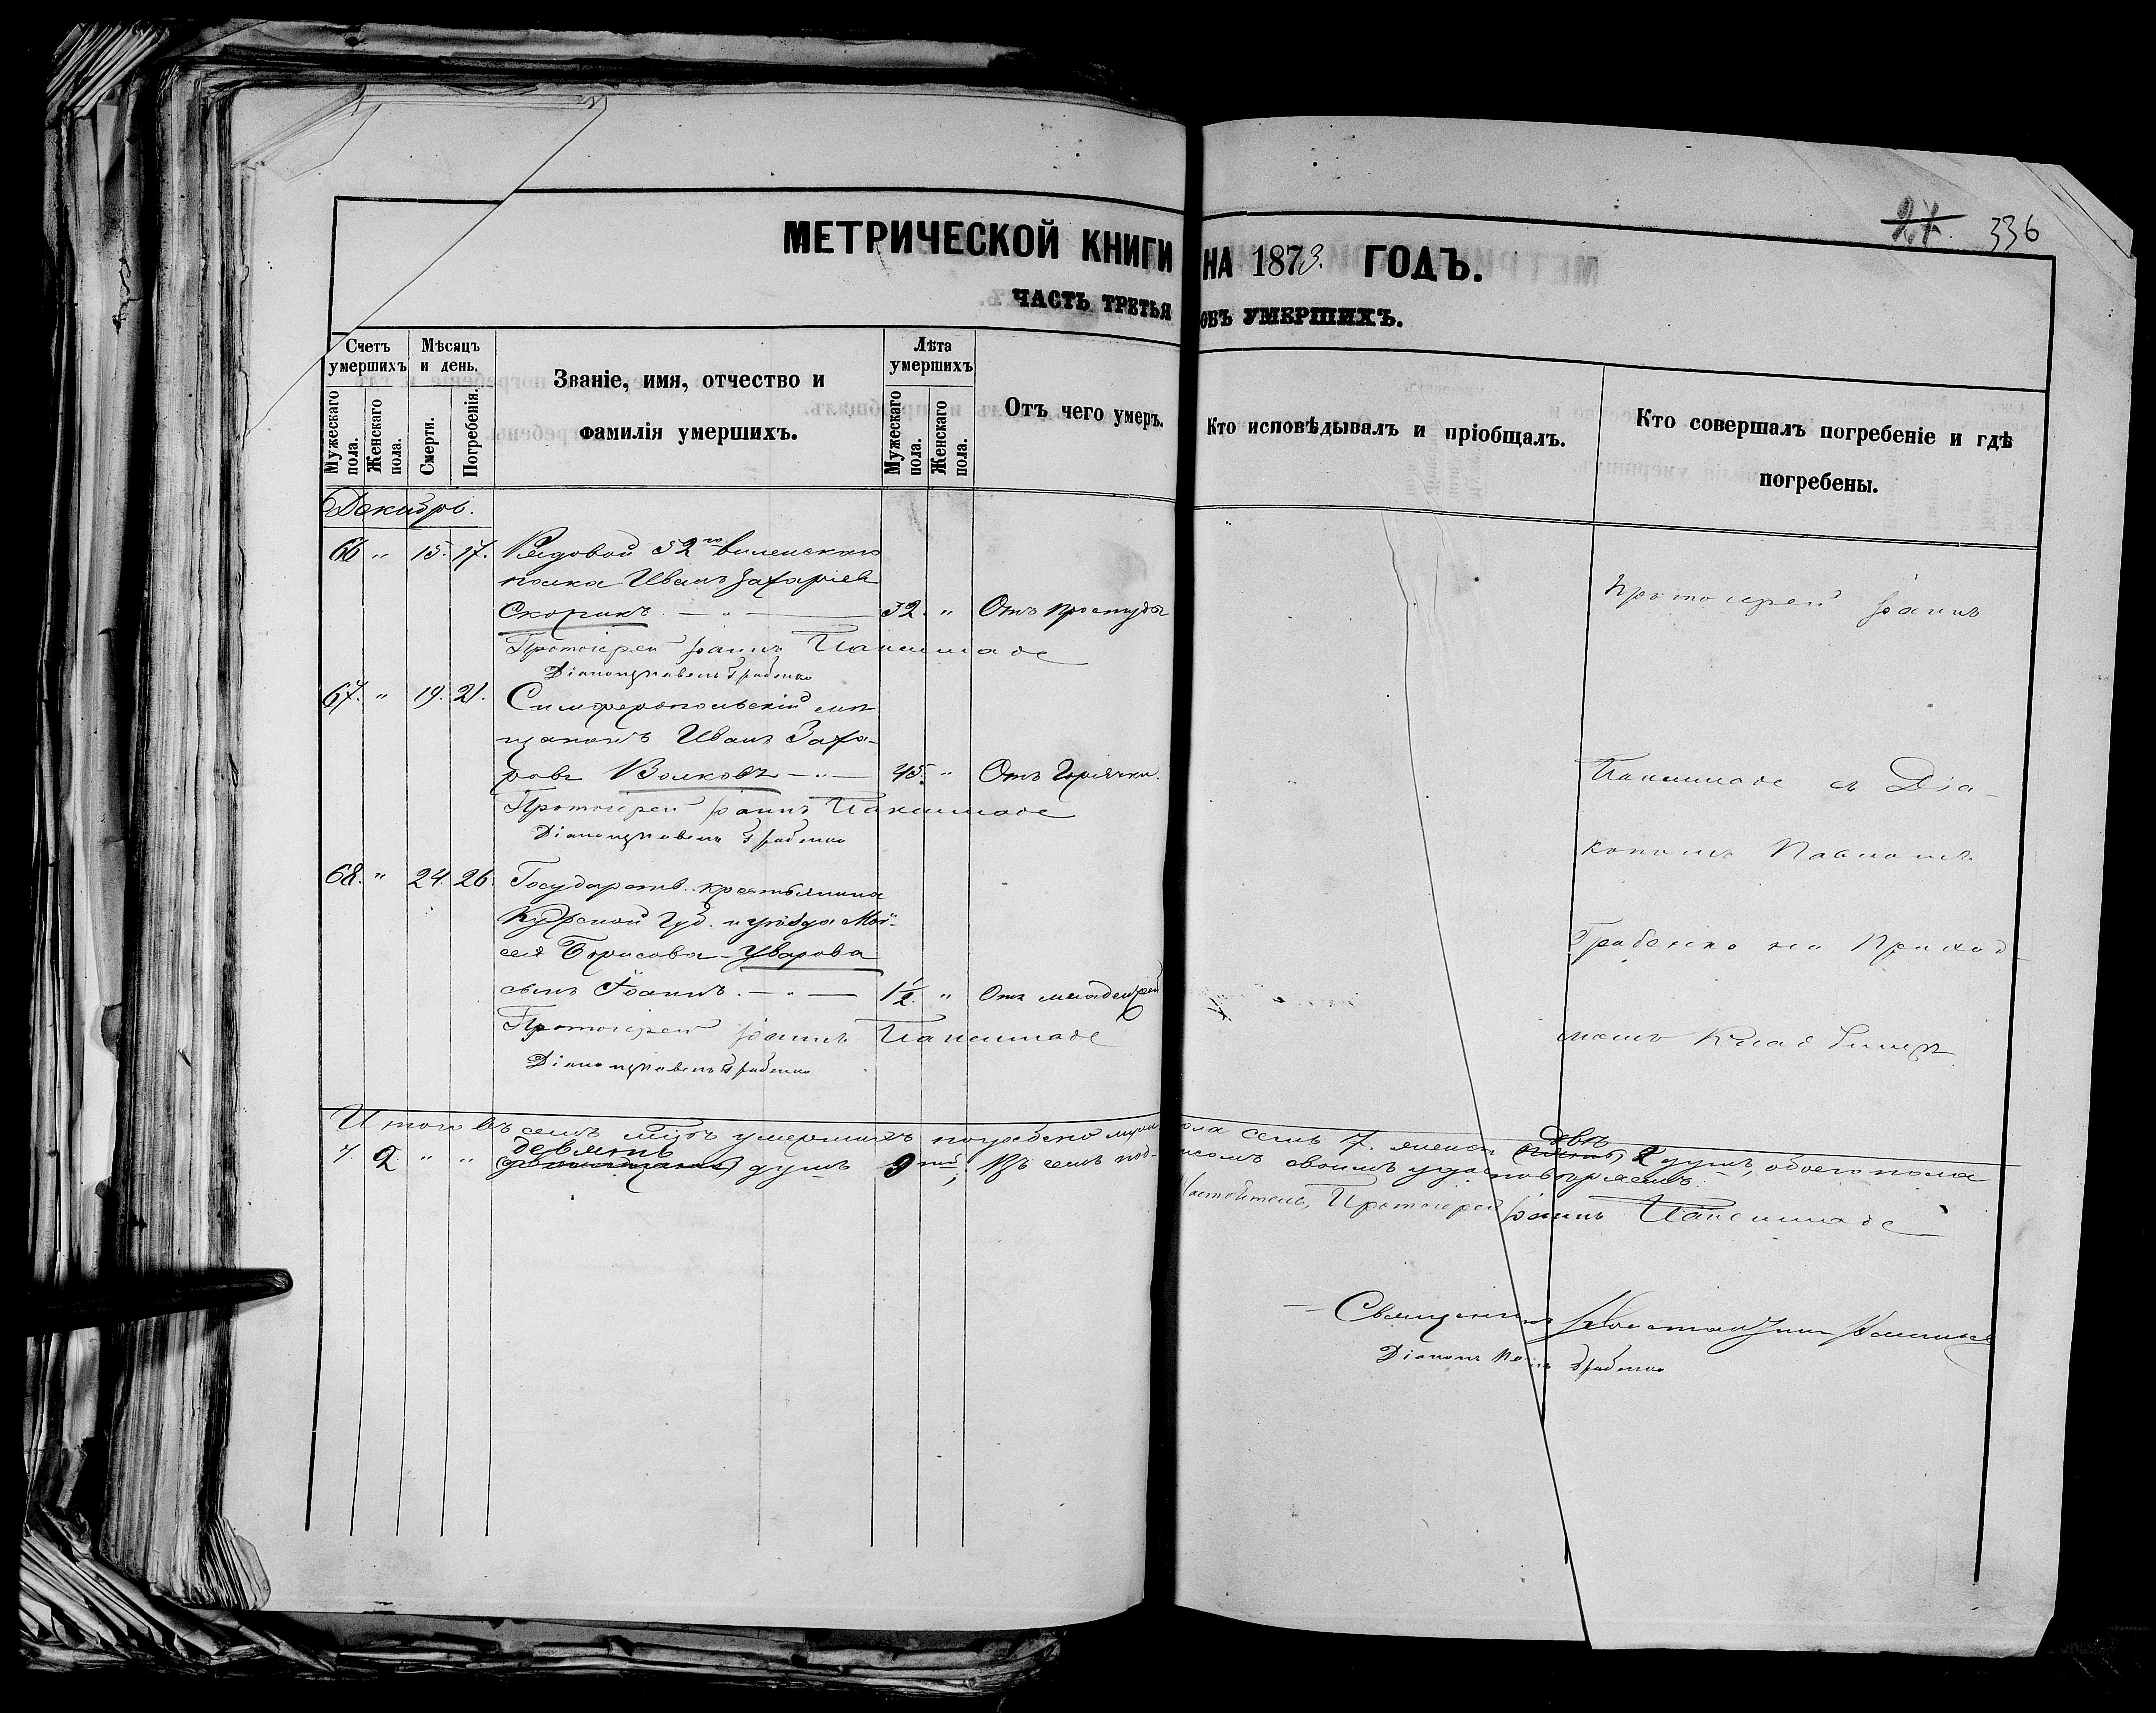 24. 336
МЕТРИЧЕСКОЙ КНИГИ НА 1873. ГОДЪ.
ЧАСТЬ ТРЕТЬЯ ОБЪ УМЕРШИХЪ.
Счетъ умершихъ
Мѣсяцъ и день.
Званіе, имя, отчество и фамилія умершихъ.
Лѣта умершихъ
Отъ чего умеръ.
Кто исповѣдывалъ и пріобщалъ.
Кто совершалъ погребеніе и гдѣ погребены.
Мужескаго пола.
Женскаго пола.
Смерти.
Погребенія.
Мужескаго пола.
Женскаго пола.
Декабрь.
66 " 15. 17. Рядовой 52го Виленскаго
полка Иванъ Захаріев
Скорикъ. — " — 32. " Отъ простуды
Протоіерей Іоаннъ
Діаконъ Павелъ Грабенко
67. " 19. 21. Симферопольскій мѣ
щанинъ Иванъ Заха-
ровъ Волковъ — " — 45. " Отъ Горячки.
Протоіерей Іоаннъ
Діаконъ Павелъ Грабенко
68. " 24. 26. Государств. крестьянина
Курской Губ. и уѣзда Мои-
сея Борисова Уварова
сынъ Іоаннъ. — " — 1½. " Отъ младенч.
Протоіерей Іоаннъ
Діаконъ Павелъ Грабенко
Протоіерей Іоаннъ
съ Діа-
кономъ Павломъ
Грабенко на Приход
скомъ Кладбищѣ
Итого въ семъ умершихъ погребено муж. пола семь 7. женск. двѣ 2 душъ, обоего пола
7. 2. " " девять душъ 9; въ чемъ подписомъ своимъ удостовѣряемъ.
Настоятель, Протоіерей Іоаннъ
Священникъ Константинъ
Діаконъ Павелъ Грабенко